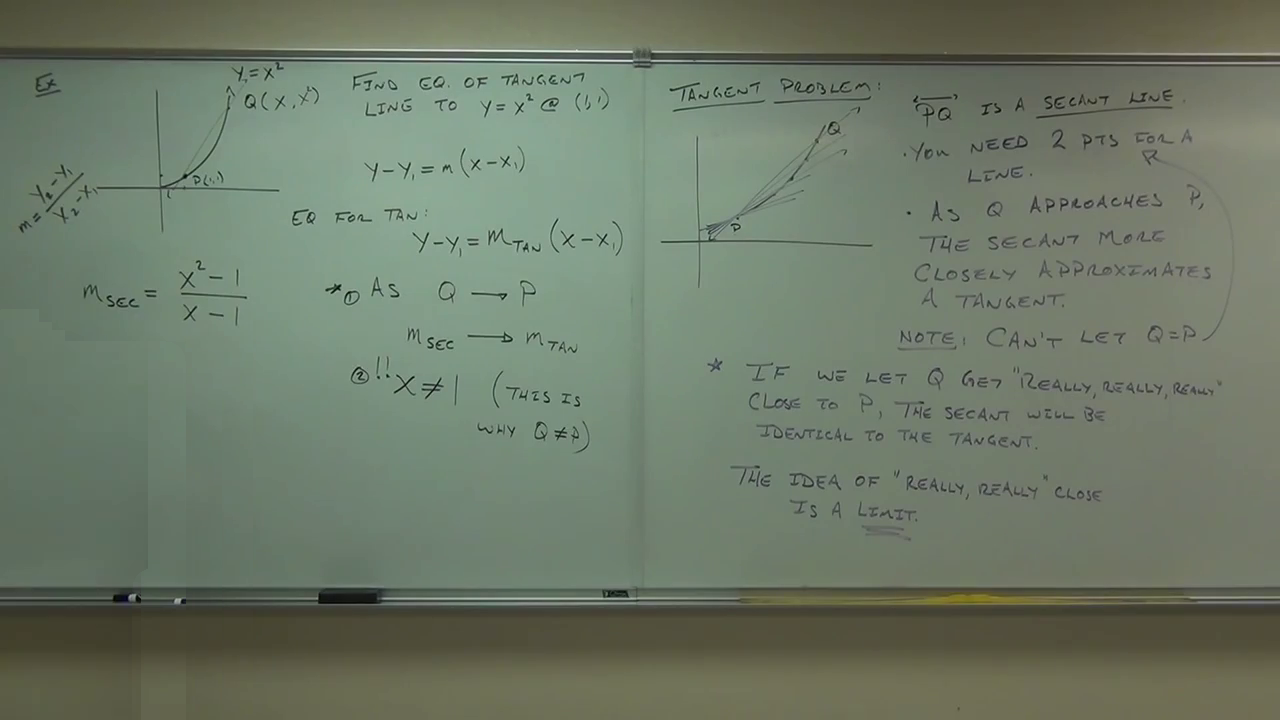 Ex
Y=X²
Q(X, X²)
P(1,1)
m = Y₂-Y₁/X₂-X₁
m SEC = X²-1/X-1
FIND EQ. OF TANGENT
LINE TO Y=X² @ (1,1)
Y-Y₁=m(X-X₁)
EQ FOR TAN:
Y-Y₁=m TAN (X-X₁)
* ① AS Q → P
m SEC → m TAN
② !! X≠1 (THIS IS
WHY Q≠P)
TANGENT PROBLEM:
Q
P
PQ IS A SECANT LINE.
· YOU NEED 2 PTS FOR A
LINE.
· AS Q APPROACHES P,
THE SECANT MORE
CLOSELY APPROXIMATES
A TANGENT.
NOTE: CAN'T LET Q=P
* IF WE LET Q GET "REALLY, REALLY, REALLY"
CLOSE TO P, THE SECANT WILL BE
IDENTICAL TO THE TANGENT.
THE IDEA OF "REALLY, REALLY" CLOSE
IS A LIMIT.